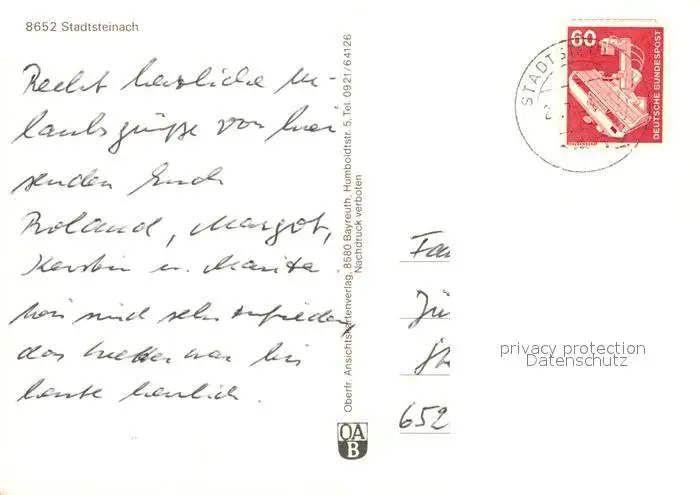 8652 Stadtsteinach
Recht herzliche Ur-
laubsgrüße von hier
senden Euch
Roland, Margot,
Kerstin u. Marita
Wir sind sehr zufrieden,
das Wetter war bis
heute herrlich.
Oberfr. Ansichtskartenverlag, 8580 Bayreuth, Humboldtstr. 5, Tel. 0921/64126
Nachdruck verboten
OA
B
60
DEUTSCHE BUNDESPOST
STADTST
Fa
Jü
652
privacy protection
Datenschutz